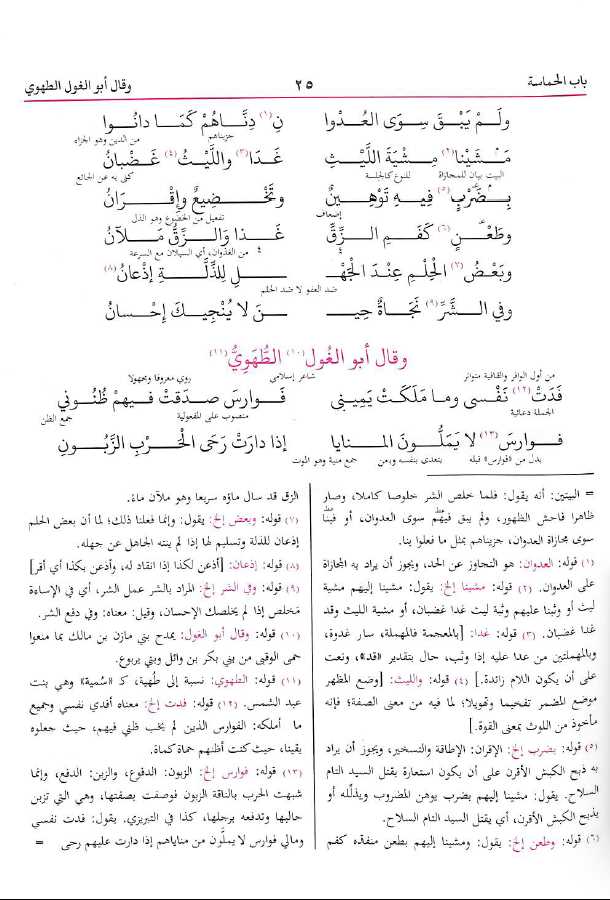 باب الحماسة ٢٥ وقال أبو الغول الطهوي
ولَمْ يَبْقَ سِوَى العُدْوا نِ (١) دِنَّاهُمْ كَمَا دانُـوا
جزيناهم من الدين وهو الجزاء
مَـشَيْنا (٢) مِشْيَةَ اللَّيْثِ غَدَا (٣) واللَّيْثُ (٤) غَضْبانُ
البيت بيان للمجازاة للنوع كالجلسة كنى به عن الجائع
بِـضَرْبٍ (٥) فِيهِ تَوْهِينٌ وتَخْضِيعٌ وإقْرَانُ
إضعاف تفعيل من الخضوع وهو الذل
وطَعْنٍ (٦) كَفَمِ الزِّقِّ غَـذا وَالزِّقُّ مَلآنُ
من الغذوان، أي السيلان مع السرعة
وبَعْضُ (٧) الحِلْمِ عِنْدَ الجَهْـ ـلِ لِلذِّلَّةِ إذْعانُ (٨)
ضد العفو لا ضد الحلم
وفي الـشَّرِّ (٩) نَجَاةٌ حِيـ ـنَ لا يُنْجِيكَ إحْسانُ
وقال أبو الغُول (١٠) الطُّهَوِيُّ (١١)
من أول الوافر والقافية متواتر شاعر إسلامي روي معروفا ومجهولا
فَدَتْ (١٢) نَفْسي وما مَلَكَتْ يَمِيني فَـوارسَ صدَقَتْ فيهِمْ ظُنُوني
الجملة دعائية منصوب على المفعولية جمع الظن
فَـوارسَ (١٣) لا يَمَلُّـونَ المنايا إذا دارَتْ رَحَى الْحَرْبِ الزَّبُونِ
بدل من «فوارس» قبله يتعدى بنفسه وبمن جمع منية وهو الموت
= البيتين: أنه يقول: فلما خلص الشر خلوصا كاملا، وصار
ظاهرا فاحش الظهور، ولم يبق فيهم سوى العدوان، أو فينا
سوى مجازاة العدوان، جزيناهم بمثل ما فعلوا بنا.
(١) قوله: العدوان: هو التجاوز عن الحد، ويجوز أن يراد به المجازاة
على العدوان. (٢) قوله: مشينا إلخ: يقول: مشينا إليهم مشية
ليث أو وثبنا عليهم وثبة ليث غدا غضبان، أو مشية الليث وقد
غدا غضبان. (٣) قوله: غدا: [بالمعجمة فالمهملة، سار غدوة،
وبالمهملتين من عدا عليه إذا وثب، حال بتقدير «قد»، ونعت
على أن يكون اللام زائدة.] (٤) قوله: والليث: [وضع المظهر
موضع المضمر تفخيما وتهويلا؛ لما فيه من معنى الصفة؛ فإنه
مأخوذ من اللوث بمعنى القوة.]
(٥) قوله: بضرب إلخ: الإقران: الإطاقة والتسخير، ويجوز أن يراد
به ذبح الكبش الأقرن على أن يكون استعارة بقتل السيد التام
السلاح. يقول: مشينا إليهم بضرب يوهن المضروب ويذلّله أو
ذبح الكبش الأقرن، أي يقتل السيد التام السلاح.
(٦) قوله: وطعن إلخ: يقول: ومشينا إليهم بطعن منفذه كفم
الزق قد سال ماؤه سريعا وهو ملآن ماءً.
(٧) قوله: وبعض إلخ: يقول: وإنما فعلنا ذلك؛ لما أن بعض الحلم
إذعان للذلة وتسليم لها إذا لم ينته الجاهل عن جهله.
(٨) قوله: إذعان: [أذعن لكذا إذا انقاد له، وأذعن بكذا أي أقر]
(٩) قوله: وفي الشر إلخ: المراد بالشر عمل الشر، أي في الإساءة
مَخلص إذا لم يخلصك الإحسان، وقيل: معناه: وفي دفع الشر.
(١٠) قوله: وقال أبو الغول: يمدح بني مازن بن مالك بما منعوا
حمى الوقبى من بني بكر بن وائل وبني يربوع.
(١١) قوله: الطهوي: نسبة إلى طُهية، كـ «سُمية» وهي بنت
عبد الشمس. (١٢) قوله: فدت إلخ: معناه أفدي نفسي وجميع
ما أملكه: الفوارس الذين لم يخب ظني فيهم، حيث جعلوه
يقينا، حيث كنت أظنهم حماة كماة.
(١٣) قوله: فوارس إلخ: الزبون: الدفوع، والزبن: الدفع، وإنما
شبهت الحرب بالناقة الزبون فوصفت بصفتها، وهي التي تزبن
حالبها وتدفعه برجلها، كذا في التبريزي. يقول: فدت نفسي
ومالي فوارس لا يملّون من مناياهم إذا دارت عليهم رحى =